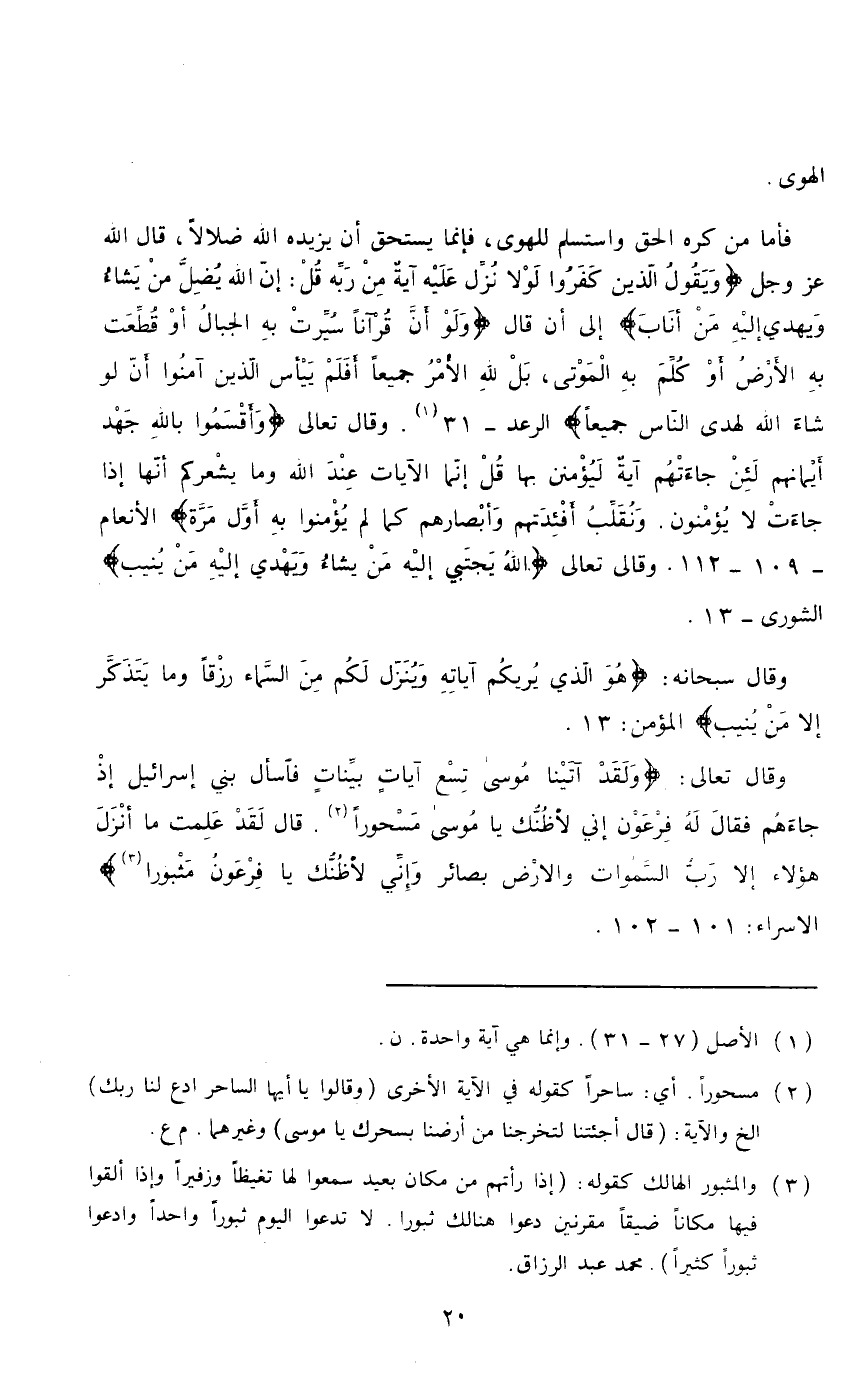 الهوى .
فأما من كره الحق واستسلم للهوى، فإنما يستحق أن يزيده الله ضلالاً، قال الله
عز وجل ﴿وَيَقُولُ الّذين كَفَرُوا لَوْلا نُزِّل عَلَيْه آيةٌ مِنْ رَبِّه قُلْ: إنّ الله يُضِلَّ منْ يَشاءُ
وَيهدي إليْهِ مَنْ أنَابَ﴾ إلى أن قال ﴿وَلَوْ أَنَّ قُرْآناً سُيِّرتْ بهِ الجبالُ أوْ قُطِّعَت
بهِ الأَرْضُ أَوْ كُلِّمَ بهِ الْمَوْتى، بَلْ للهِ الأمْرُ جميعاً أَفَلَمْ يَيْأس الّذين آمنُوا أنّ لو
شاءَ الله لهدى النّاس جميعاً﴾ الرعد ـ ٣١(١) . وقال تعالى ﴿وَأَقْسَمُوا باللهِ جَهْد
أَيْمانهم لَئِنْ جاءَتْهُم آيةٌ لَيُؤْمنن بها قُلْ إنّما الآيات عِنْدَ الله وما يشْعركم أنّها إذا
جاءَتْ لا يُؤمْنون . وَنُقَلِّبُ أفْئِدَتهم وَأبْصارهم كما لم يُؤْمنوا بهِ أوَّل مَرَّة﴾ الأنعام
ـ ١٠٩ ـ ١١٢ . وقالى تعالى ﴿.اللهُ يَجتَبي إليْه مَنْ يشاءُ وَيَهْدي إليْه مَنْ يُنيب﴾
الشورى ـ ١٣ .
وقال سبحانه: ﴿هُوَ الّذي يُريكُم آياتهِ وَيُنَزّل لَكُم مِنَ السَّماء رزْقاً وما يَتَذكَّر
إلا مَنْ يُنيب﴾ المؤمن: ١٣ .
وقال تعالى: ﴿وَلَقَدْ آتَيْنا مُوسىٰ تِسْع آياتٍ بيِّناتٍ فٱسأل بني إسرائيل إذْ
جاءَهُم فقالَ لَهُ فِرْعَوْن إني لأظُنُّك يا موسىٰ مَسْحوراً(٢) . قال لَقَدْ عَلِمت ما أنْزَلَ
هؤلاء إلا رَبُّ السَّمٰوات والارْض بصائر وَإنِّي لأظُنُّك يا فِرْعَونُ مَثْبورا(٣)﴾
الاسراء: ١٠١ ـ ١٠٢ .
(١) الأصل (٢٧ ـ ٣١) . وإنما هي آية واحدة . ن .
(٢) مسحوراً . أي: ساحراً كقوله في الآية الأخرى (وقالوا يا أيها الساحر ادع لنا ربك)
الخ والآية: (قال أجئتنا لتخرجنا من أرضنا بسحرك يا موسى) وغيرهما . م ع .
(٣) والمثبور الهالك كقوله: (إذا رأتهم من مكان بعيد سمعوا لها تغيظاً وزفيراً وإذا ألقوا
فيها مكاناً ضيقاً مقرنين دعوا هنالك ثبورا . لا تدعوا اليوم ثبوراً واحداً وادعوا
ثبوراً كثيراً) . محمد عبد الرزاق.
٢٠